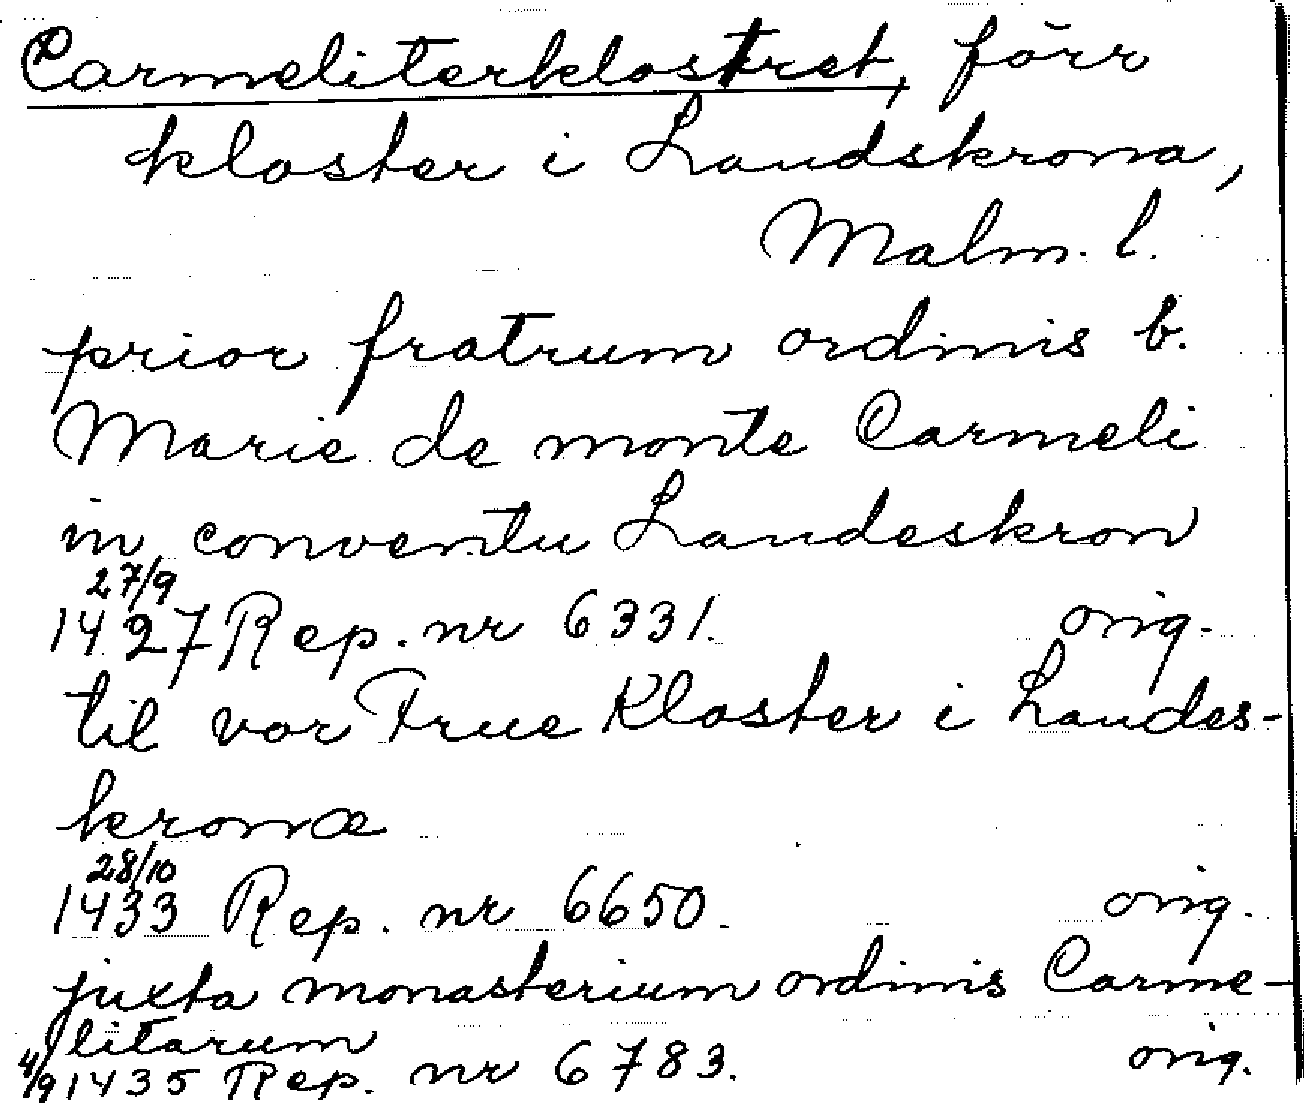 Carmeliterklostret, förr
kloster i Landskrona,
Malm. l.
prior fratrum ordinis b.
Marie de monte Carmeli
in conventu Landeskron
27/9
1427 Rep. nr 6331. orig.
til vor Frue Kloster i Landes-
kronæ
28/10
1433 Rep. nr 6650. orig.
juxta monasterium ordinis Carme-
litarum
4/9 1435 Rep. nr 6783. orig.